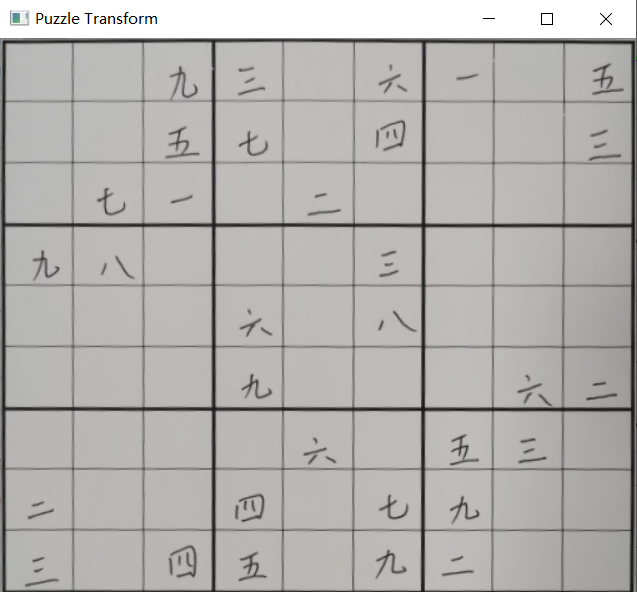 Puzzle Transform
九 三 六 一 五
五 七 四 三
七 一 二
九 八 三
六 八
九 六 二
六 五 三
二 四 七 九
三 四 五 九 二